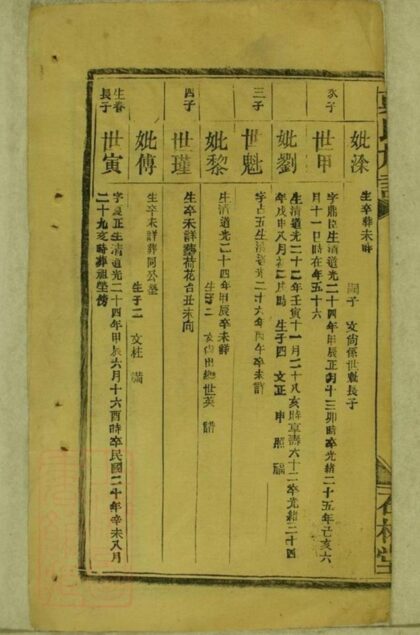 石林堂
妣涂 生卒葬未詳
嗣子 文尚係世魁長子
次子 世甲 字鼎臣生清道光二十四年甲辰正月十三卯時卒光緒二十五年己亥六
月十一巳時在年五十六
妣劉 生清道光二十二年壬寅十一月二十八亥時享壽六十二卒光緒二十四
年戊申八月初二時 生子四 文正 申 照 福
三子 世魁 字占五生清道光二十六年丙午卒未詳
妣黎 生清道光二十四年甲辰卒未詳
生子二 文尚出繼世英
四子 世瑾 生卒未詳葬荷花台丑未向
妣傅 生卒未詳葬同公塋
生子二 文柱 滿
生春
長子 世寅 字夏正生清道光二十四年甲辰六月十六酉時卒民國二十年辛未八月
二十九亥時葬祖塋傍